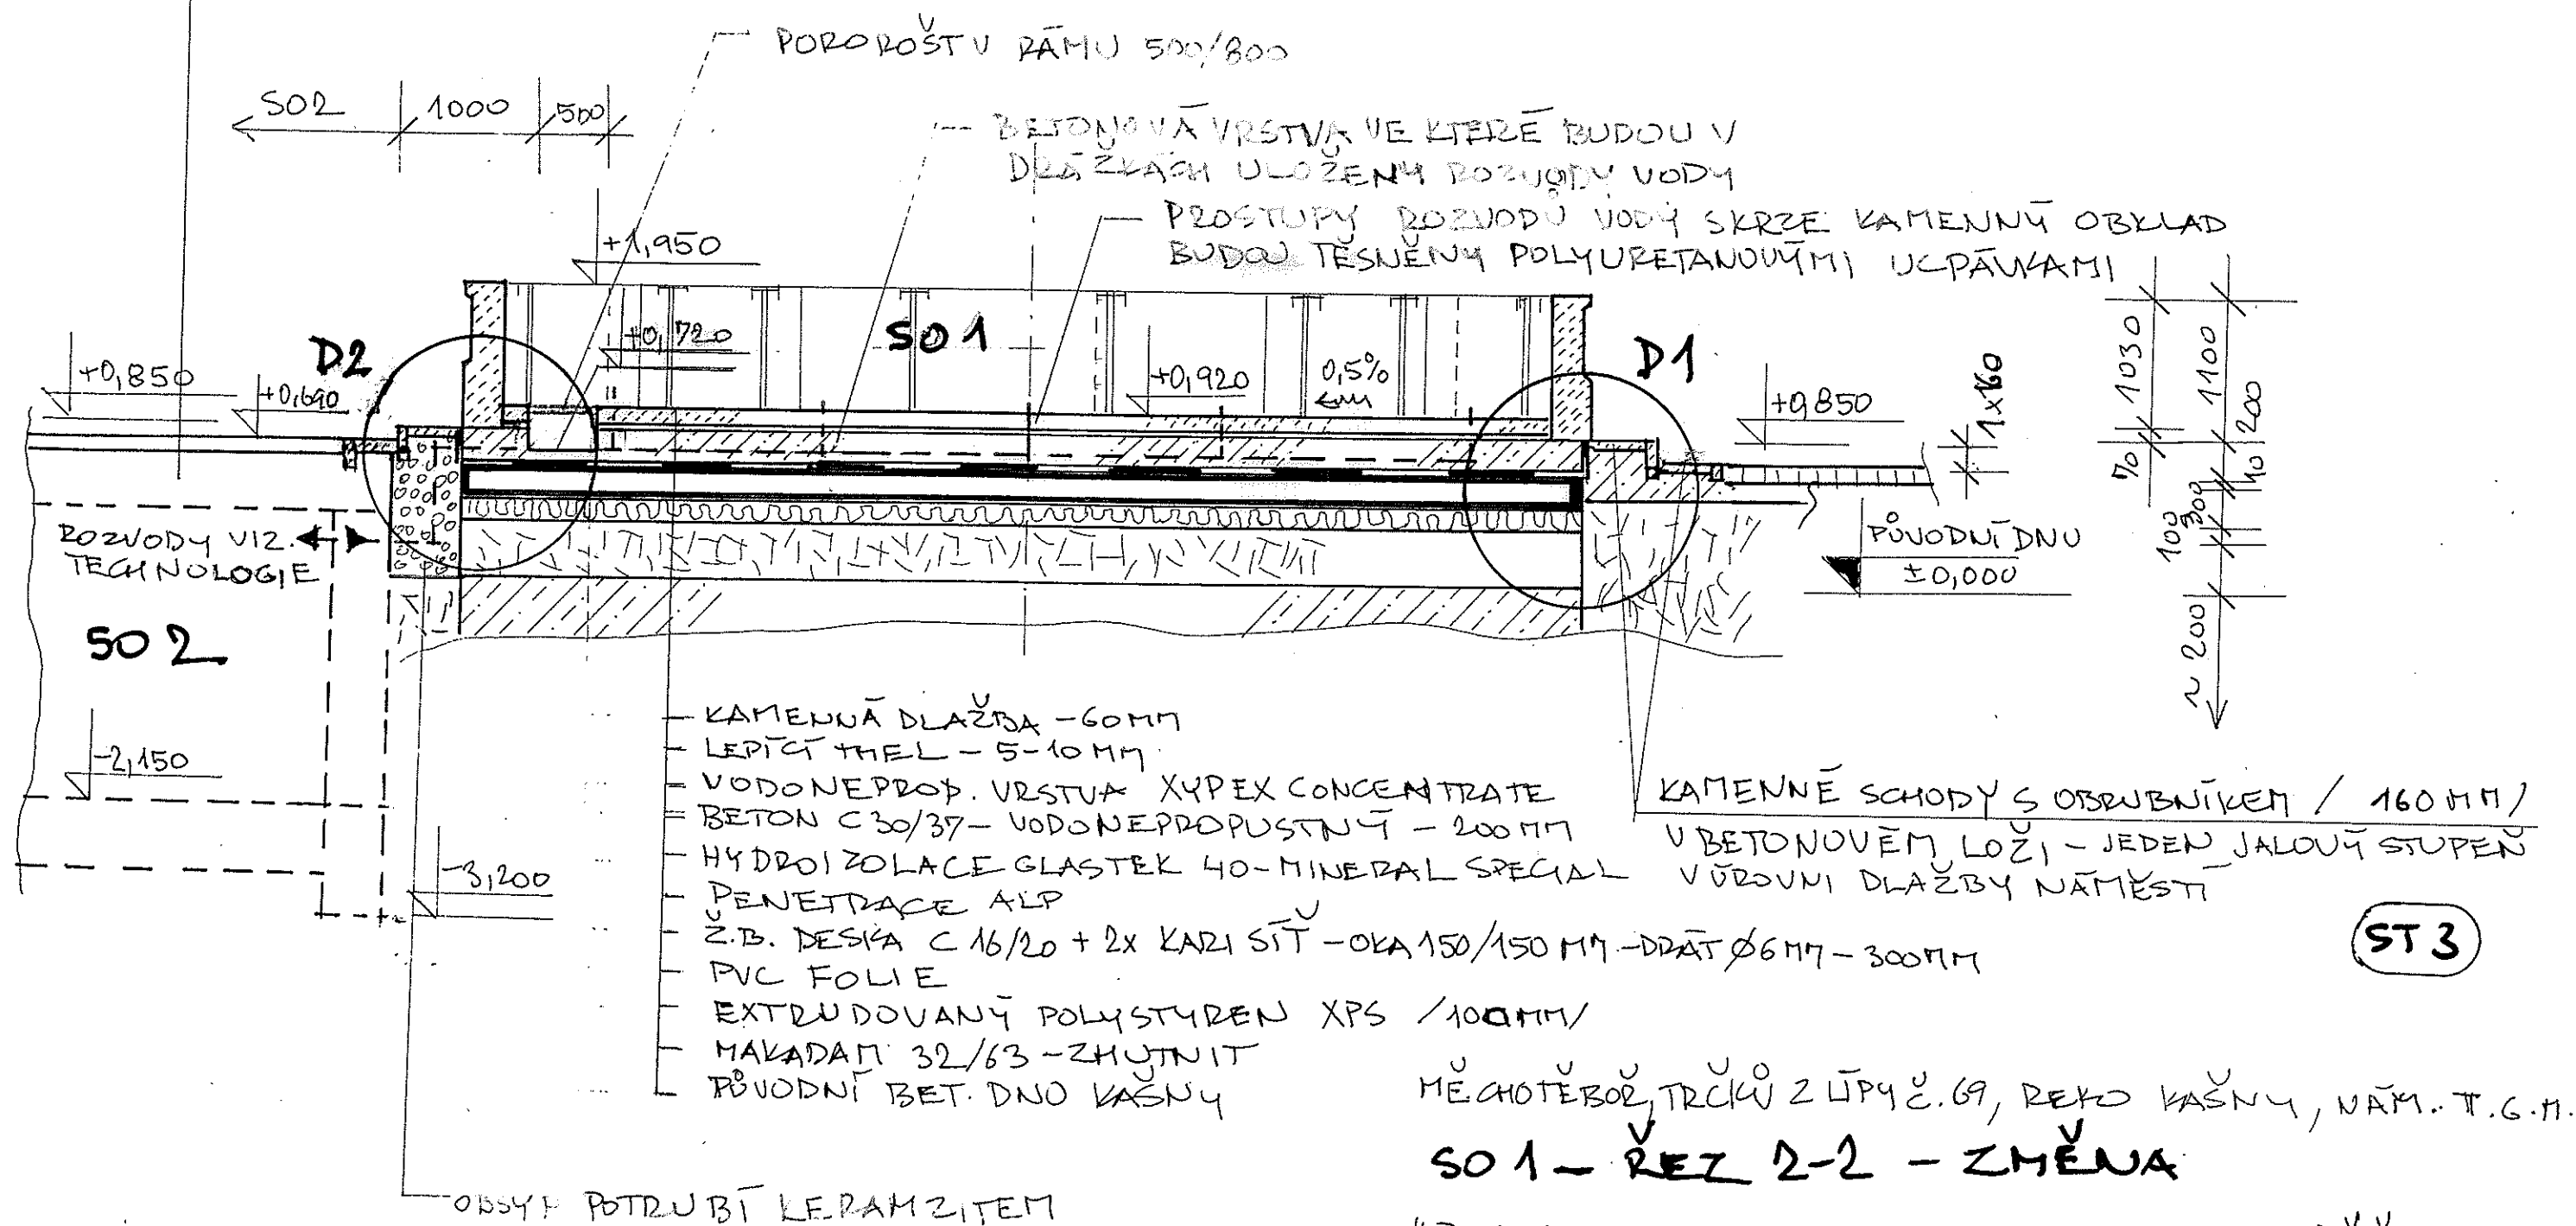 POROROŠT V RÁMU 500/800
SO2 1000 500
BETONOVÁ VRSTVA VE KTERÉ BUDOU V
DRÁŽKÁCH ULOŽENY ROZVODY VODY
PROSTUPY ROZVODŮ VODY SKRZE KAMENNÝ OBKLAD
BUDOU TĚSNĚNY POLYURETANOVÝMI UCPÁVKAMI
+1,950
D2
+0,720
SO1
D1
+0,850
+0,690
+0,920
0,5%
+0,850
1x160
1030
1100
70
200
10
300
100
~200
ROZVODY VIZ.
TECHNOLOGIE
SO 2
PŮVODNÍ DNO
±0,000
-2,150
-3,200
KAMENNÁ DLAŽBA - 60 MM
LEPÍCÍ TMEL - 5-10 MM
VODONEPROP. VRSTVA XYPEX CONCENTRATE
BETON C 30/37 - VODONEPROPUSTNÝ - 200 MM
HYDROIZOLACE GLASTEK 40 - MINERAL SPECIAL
PENETRACE ALP
Ž.B. DESKA C 16/20 + 2x KARI SÍŤ - OKA 150/150 MM - DRÁT Ø6 MM - 300 MM
PVC FOLIE
EXTRUDOVANÝ POLYSTYREN XPS /100 MM/
MAKADAM 32/63 - ZHUTNIT
PŮVODNÍ BET. DNO KAŠNY
KAMENNÉ SCHODY S OBRUBNÍKEM / 160 MM/
V BETONOVÉM LOŽI - JEDEN JALOVÝ STUPEŇ
V ÚROVNI DLAŽBY NÁMĚSTÍ
ST 3
OBSYP POTRUBÍ KERAMZITEM
MĚCHOTĚBOŘ, TRČKŮ Z LÍPY Č. 69, REKO KAŠNY, NÁM. T.G.M.
SO 1 - ŘEZ 2-2 - ZMĚNA